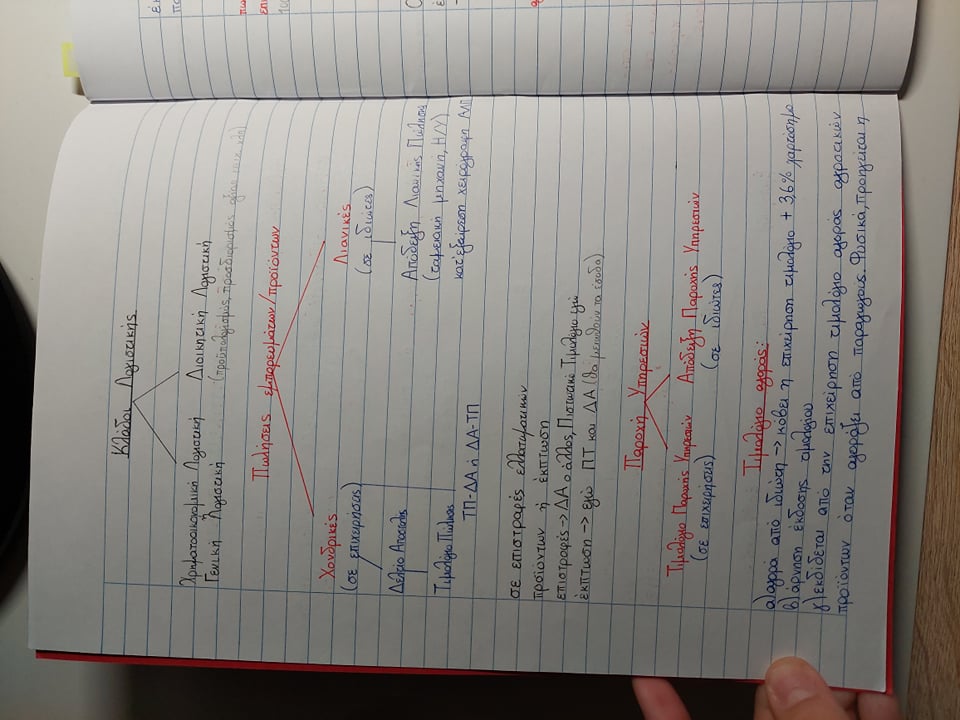 Κλάδοι Λογιστικής
Χρηματοοικονομική Λογιστική
ή
Γενική Λογιστική
Διοικητική Λογιστική
(προϋπολογισμός, προσδιορισμός αξίας κλπ)
Πωλήσεις εμπορευμάτων/προϊόντων
Χονδρικές
(σε επιχειρήσεις)
Δελτίο Αποστολής
Τιμολόγιο Πώλησης
ΤΠ-ΔΑ ή ΔΑ-ΤΠ
Λιανικές
(σε ιδιώτες)
Απόδειξη Λιανικής Πώλησης
(ταμειακή μηχανή, Η/Υ)
κατ'εξαίρεση χειρόγραφη ΑΛΠ
σε επιστραφές ελλατωματικών
προϊόντων ή έκπτωση
επιστροφές → ΔΑ ο άλλος, Πιστωτικό Τιμολόγιο εγώ
έκπτωση → εγώ ΠΤ και ΔΑ (θα μειωθούν τα έσοδα)
Παροχή Υπηρεσιών
Τιμολόγιο Παροχής Υπηρεσιών
(σε επιχειρήσεις)
Απόδειξη Παροχής Υπηρεσιών
(σε ιδιώτες)
Τιμολόγιο αγοράς:
α) αγορά από ιδιώτη → κόβει η επιχείρηση τιμολόγιο + 3,6% χαρτόσημο
β) άρνηση έκδοσης τιμολογίου
γ) εκδίδεται από την επιχείρηση τιμολόγιο αγοράς αγροτικών
προϊόντων όταν αγοράζει από παραγωγούς. Φυσικά, προηγείται η